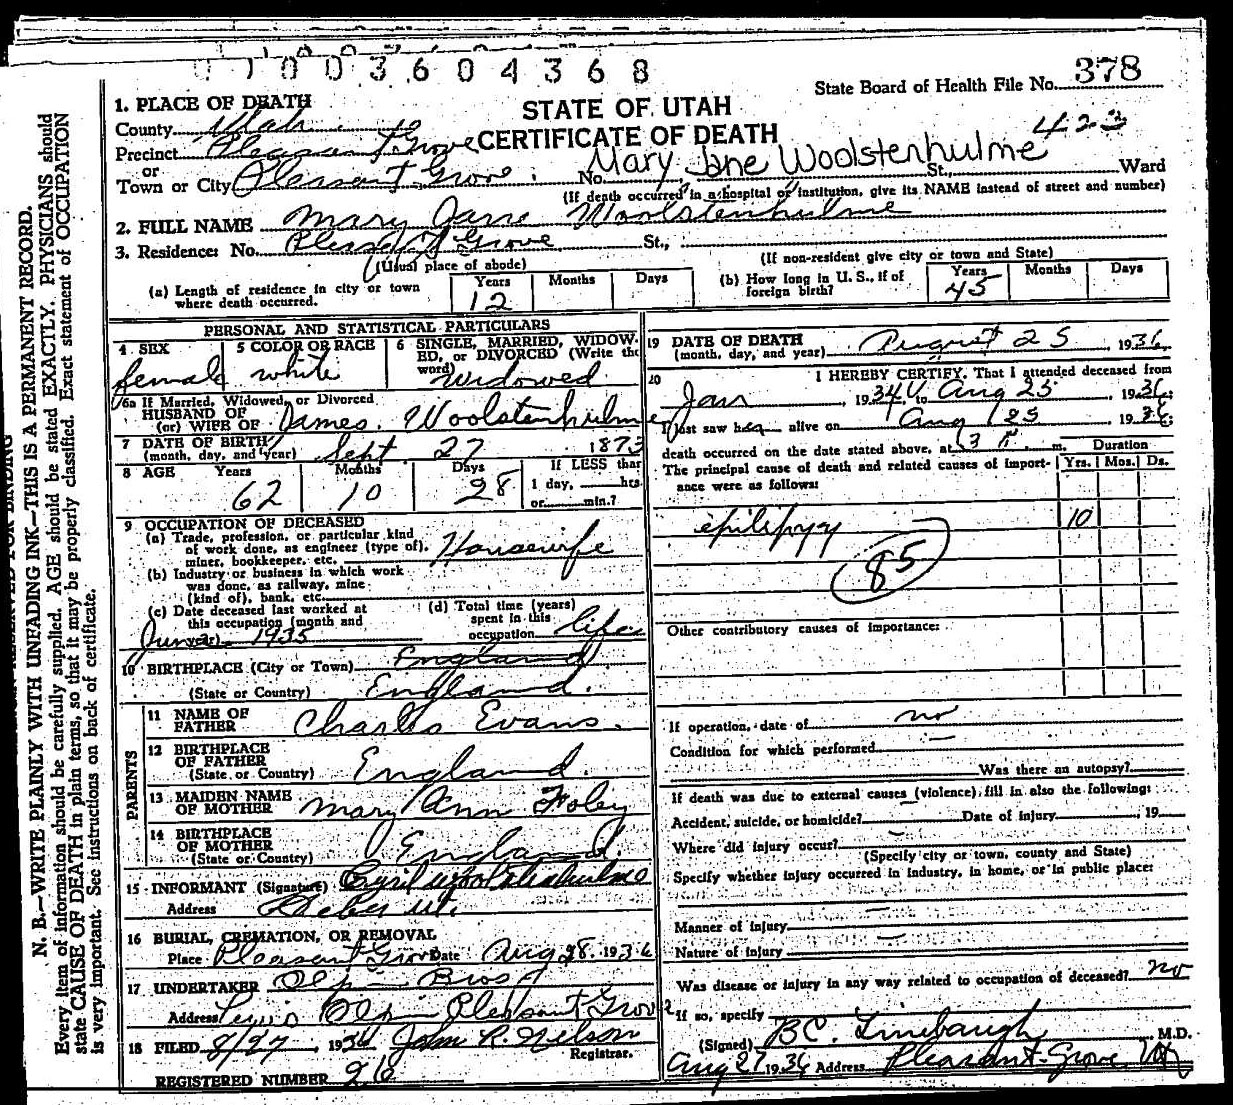 0 1 0 0 3 6 0 4 3 6 8
State Board of Health File No. 378
1. PLACE OF DEATH
STATE OF UTAH
County Utah
CERTIFICATE OF DEATH
423
Precinct Pleasant Grove
or
Town or City Pleasant Grove. No. Mary Jane Woolstenhulme St., Ward
(If death occurred in a hospital or institution, give its NAME instead of street and number)
2. FULL NAME Mary Jane Woolstenhulme
3. Residence: No. Pleasant Grove St.,
(Usual place of abode) (If non-resident give city or town and State)
(a) Length of residence in city or town where death occurred. Years 12 Months Days
(b) How long in U. S., if of foreign birth? Years 45 Months Days
PERSONAL AND STATISTICAL PARTICULARS
4 SEX female
5 COLOR OR RACE white
6 SINGLE, MARRIED, WIDOWED, or DIVORCED (Write the word) Widowed
6a If Married, Widowed, or Divorced
HUSBAND OF
(or) WIFE OF James Woolstenhulme
7 DATE OF BIRTH
(month, day, and year) Sept. 27 1873
8 AGE Years 62 Months 10 Days 28 If LESS than 1 day, hrs. or min.?
9 OCCUPATION OF DECEASED
(a) Trade, profession, or particular kind
of work done, as engineer (type of),
miner, bookkeeper, etc. Housewife
(b) Industry or business in which work
was done, as railway, mine
(kind of), bank, etc.
(c) Date deceased last worked at
this occupation (month and
year) June 1935
(d) Total time (years)
spent in this
occupation life
10 BIRTHPLACE (City or Town) England
(State or Country) England.
PARENTS
11 NAME OF
FATHER Charles Evans.
12 BIRTHPLACE
OF FATHER
(State or Country) England.
13 MAIDEN NAME
OF MOTHER Mary Ann Foley
14 BIRTHPLACE
OF MOTHER
(State or Country) England.
15 INFORMANT (Signature) Cyril Woolstenhulme
Address Heber Ut.
16 BURIAL, CREMATION, OR REMOVAL
Place Pleasant Grove Date Aug 28. 1936
17 UNDERTAKER Olpin Bros
Address Lewis Olpin Pleasant Grove
18 FILED 8/27, 1936 John R. Nelson
Registrar.
REGISTERED NUMBER 26
19 DATE OF DEATH
(month, day, and year) August 25, 1936
20 I HEREBY CERTIFY, That I attended deceased from
Jan, 1934, to Aug 25, 1936;
I last saw her alive on Aug 25, 1936;
death occurred on the date stated above, at 3 P. m.
The principal cause of death and related causes of importance were as follows:
Duration
Yrs. Mos. Ds.
epilipsy 10
85
Other contributory causes of importance:
If operation, date of no
Condition for which performed
Was there an autopsy?
If death was due to external causes (violence), fill in also the following:
Accident, suicide, or homicide? Date of injury, 19
Where did injury occur?
(Specify city or town, county and State)
Specify whether injury occurred in industry, in home, or in public place:
Manner of injury
Nature of injury
Was disease or injury in any way related to occupation of deceased? no
If so, specify
(Signed) BC. Linebaugh M.D.
Aug 27 1936 Address Pleasant Grove, Ut
N. B.—WRITE PLAINLY WITH UNFADING INK—THIS IS A PERMANENT RECORD.
Every item of information should be carefully supplied. AGE should be stated EXACTLY. PHYSICIANS should
state CAUSE OF DEATH in plain terms, so that it may be properly classified. Exact statement of OCCUPATION
is very important. See instructions on back of certificate.